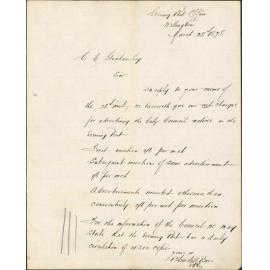 Evening Post Office
Wellington
March 28th 1878
C. C. Graham Esq
Sir
In reply to your memo of
the 28th inst, we herewith give our net charges
for advertising the City Council notices in the
Evening Post
First insertion
Subsequent insertion of same advertisement
per inch
Advertisements inserted otherwise than
consecutively per inch per insertion
For the information of the Council we may
state that the Evening Post has a daily
circulation of copies